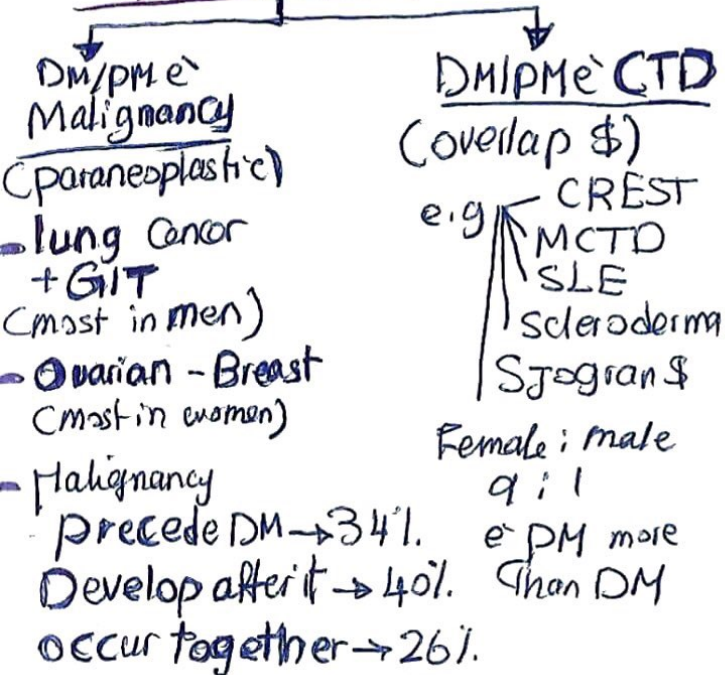 DM/PM è
Malignancy
(paraneoplastic)
- lung Cancor
+ GIT
(most in men)
- Ovarian - Breast
(most in women)
- Malignancy
precede DM → 34%.
Develop after it → 40%.
occur together → 26%.
DM/PM è CTD
(overlap $)
e.g CREST
MCTD
SLE
scleroderma
Sjogran $
Female : male
9 : 1
è PM more
than DM